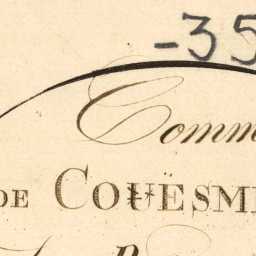 -35
Comm
DE COUËSM